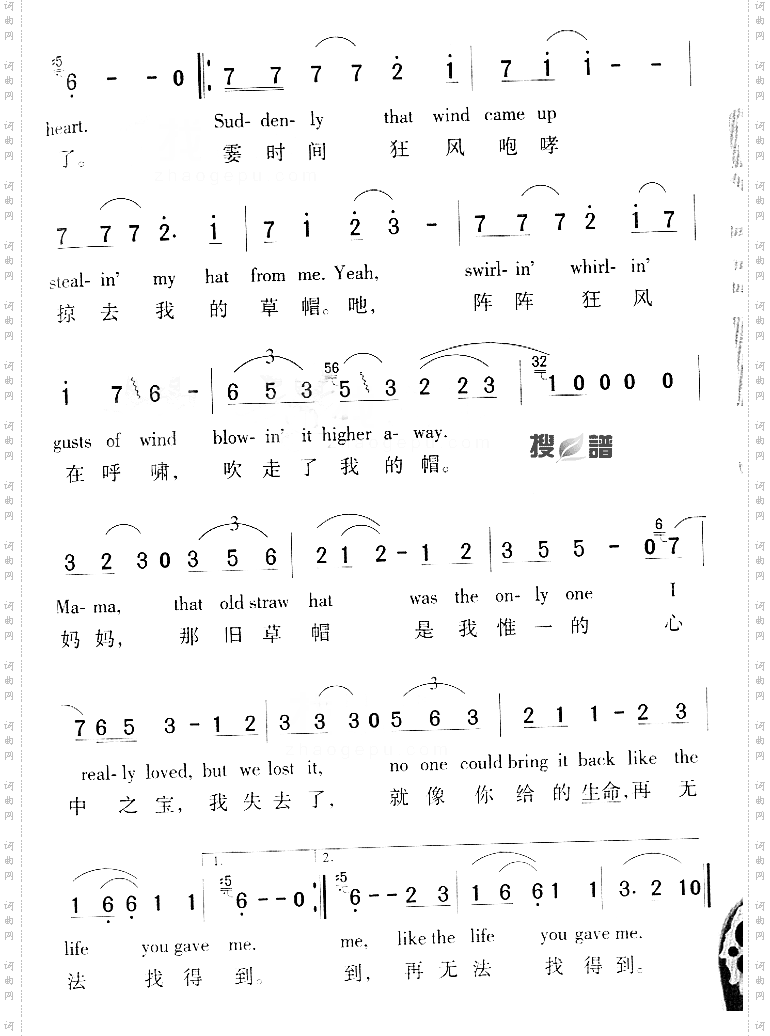 5
6 - - 0 7 7 7 7 2 1 7 1 1 - -
heart. Sud- den- ly that wind came up
了。 霎 时 间 狂 风 咆 哮
7 7 7 2. 1 7 1 2 3 - 7 7 7 2 1 7
steal- in' my hat from me. Yeah, swirl- in' whirl- in'
掠 去 我 的 草 帽。吔, 阵 阵 狂 风
3 56 32
1 7 6 - 6 5 3 5 3 2 2 3 1 0 0 0 0 0
gusts of wind blow- in' it higher a- way.
在 呼 啸, 吹 走 了 我 的 帽。
搜 譜
3 6
3 2 3 0 3 5 6 2 1 2 - 1 2 3 5 5 - 0 7
Ma- ma, that old straw hat was the on- ly one I
妈 妈, 那 旧 草 帽 是 我 惟 一 的 心
3
7 6 5 3 - 1 2 3 3 3 0 5 6 3 2 1 1 - 2 3
real- ly loved, but we lost it, no one could bring it back like the
中 之 宝, 我 失 去 了, 就 像 你 给 的 生命,再 无
1. 2.
5 5
1 6 6 1 1 6 - - 0 6 - - 2 3 1 6 6 1 1 3. 2 1 0
life you gave me. me, like the life you gave me.
法 找 得 到。 到, 再 无 法 找 得 到。